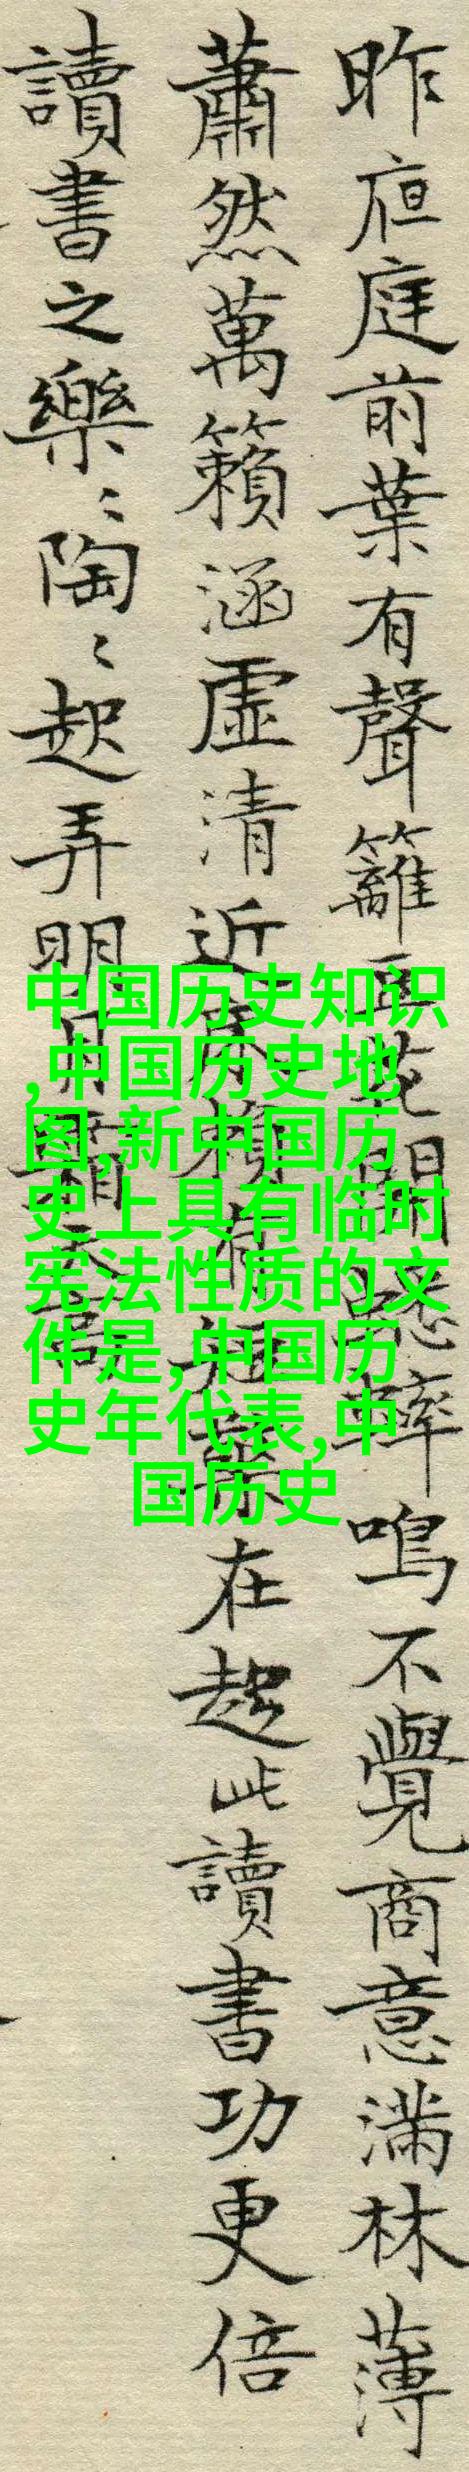 昨夜庭前葉有聲籬豆花開蟋蟀鳴不覺商意滿林薄
蕭然萬籟涵虛清近床賴有短檠在趁此讀書功更倍
讀書之樂〻陶〻起弄明月霜天高
中国历史知识
,中国历史地
图,新中国历
史上具有临时
宪法性质的文
件是,中国历
史年代表,中
国历史